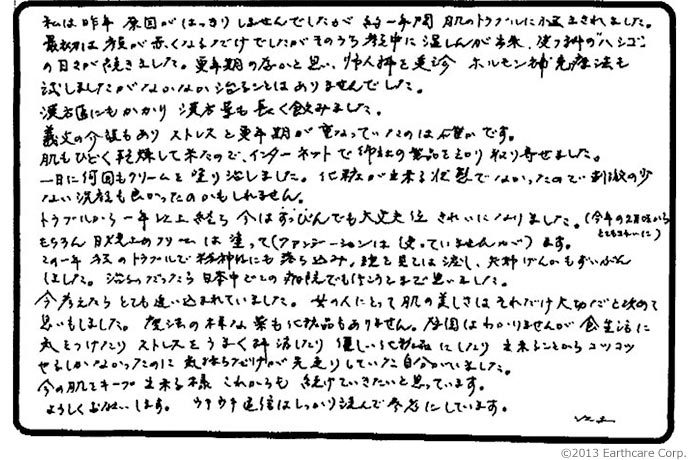 私は昨年 原因がはっきりしませんでしたが 約一年間 肌のトラブルに悩まされました。
最初は顔が赤くなるだけでしたがそのうち顔中に湿しんが出来、皮フ科の"ハシゴ"
の日々が続きました。更年期の為かと思い、婦人科を受診 ホルモン補充療法も
試しましたがなかなか治ることはありませんでした。
漢方医にもかかり 漢方薬も長く飲みました。
義父の介護もあり ストレスと更年期が重なっていたのは確かです。
肌もひどく乾燥して来たので、インターネットで御社の製品を知り取り寄せました。
一日に何回もクリームを塗り治しました。化粧が出来る状態でなかったので刺激の少
ない洗顔も良かったのかもしれません。
トラブルから一年以上経ち 今はすっぴんでも大丈夫位 きれいになりました。(今年の2月頃から
とてもキレイに)
もちろん 日焼止めのクリームは塗って(ファンデーションは使っていませんが)ます。
この一年 顔のトラブルで精神的にも落ち込み、鏡を見ては涙し、夫婦げんかもずいぶん
しました。治るのだったら日本中どこの病院でも行こうとまで思いました。
今考えたらとても追い込まれていました。女の人にとって肌の美しさはそれだけ大切だと改めて
思いもしました。魔法の様な薬も化粧品もありません。原因はわかりませんが食生活に
気をつけたり ストレスをうまく解消したり 優しい化粧品にしたり 出来ることからコツコツ
やるしかなかったのに 気持ちだけが先走りしていた自分がいました。
今の肌をキープ出来る様 これからも 続けていきたいと思っています。
よろしくお願いします。 ウチウチ通信はしっかり読んで参考にしています。
©2013 Earthcare Corp.